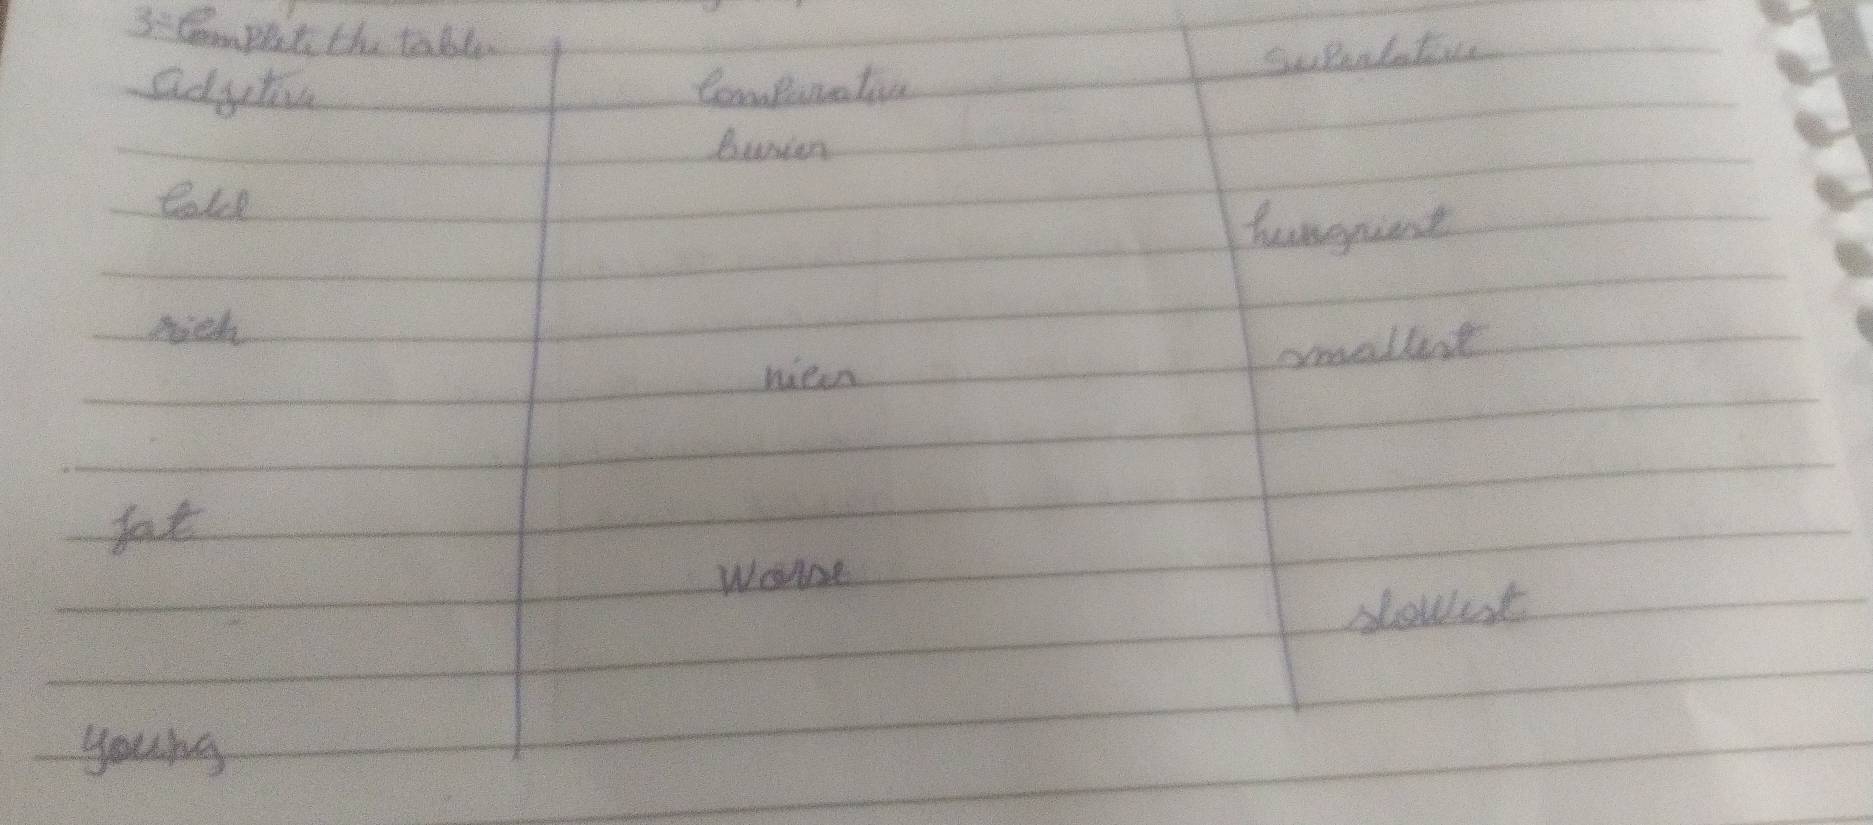 3- Complete the table
Adjetive Comparative Superlative
busier
Cold
hungriest
rich
smallest
nicer
fat
worse
slowest
young